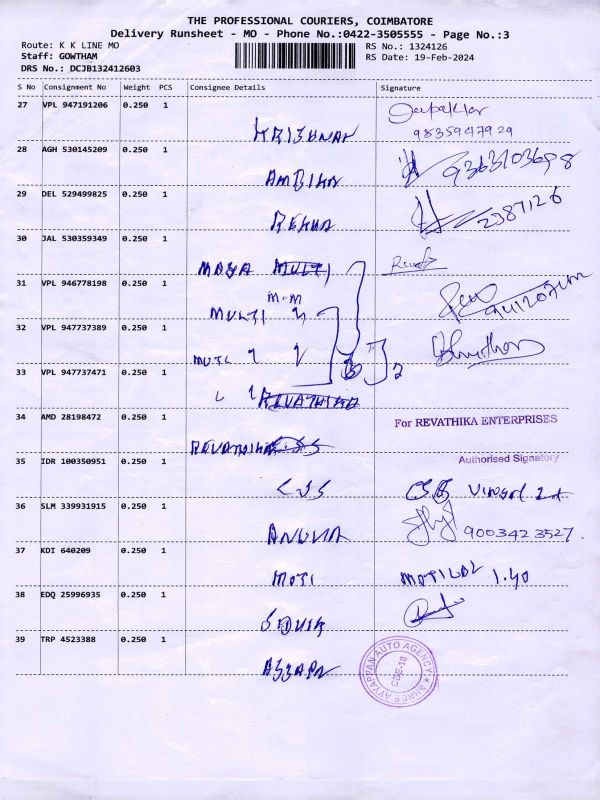 THE PROFESSIONAL COURIERS, COIMBATORE
Delivery Runsheet - MO - Phone No.:0422-3505555 - Page No.:3
Route: K K LINE MO
RS No.: 1324126
Staff: GOWTHAM
RS Date: 19-Feb-2024
DRS No.: DCJB132412603
S No Consignment No Weight PCS Consignee Details Signature
27 VPL 947191206 0.250 1
9835947929
KRISHNAN
28 AGH 530145209 0.250 1
9363103698
AMBIKA
29 DEL 529499825 0.250 1
2387126
REKHA
30 JAL 530359349 0.250 1
MAYA MULTI
31 VPL 946778198 0.250 1
MULTI
32 VPL 947737389 0.250 1
33 VPL 947737471 0.250 1
2
REVATHIKA
34 AMD 28198472 0.250 1
For REVATHIKA ENTERPRISES
REVATHIKA
35 IDR 100350951 0.250 1
Authorised Signatory
CSS
36 SLM 339931915 0.250 1
9003423527
37 KDI 640209 0.250 1
MOTI
MOTILAL 1.40
38 EDQ 25996935 0.250 1
39 TRP 4523388 0.250 1
SHREE AYYAPPAN AUTO AGENCY
CBE-18